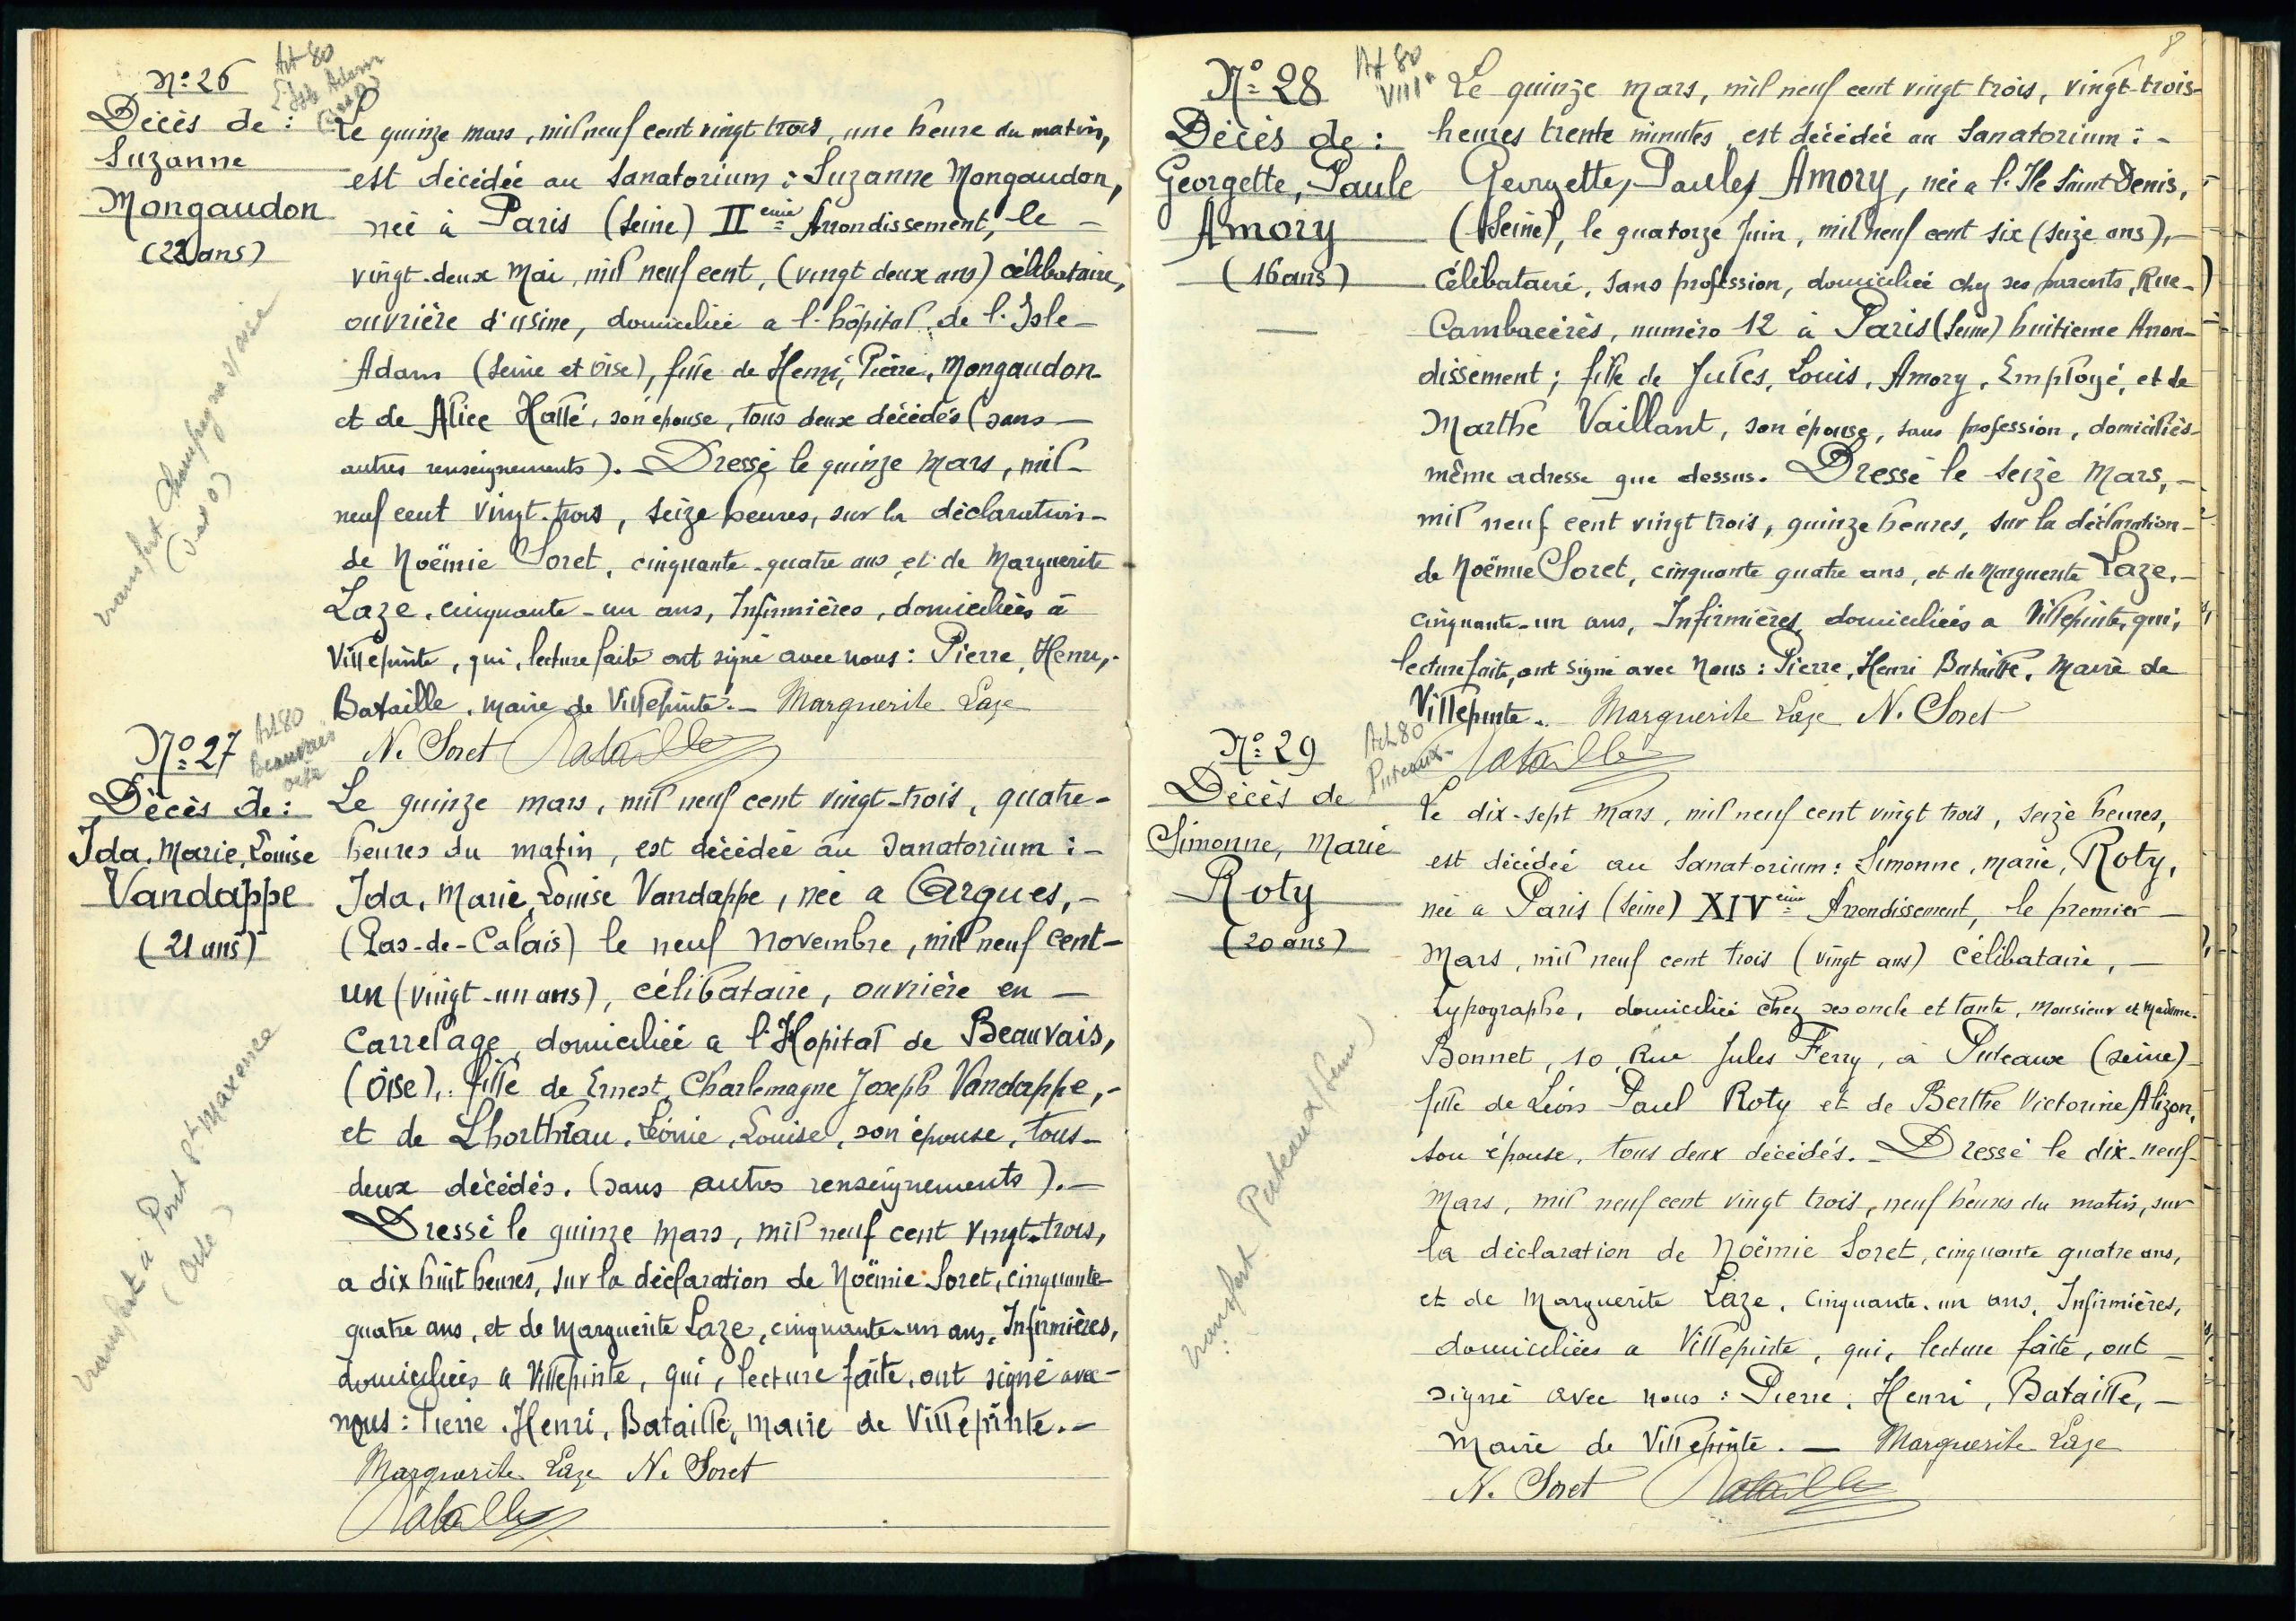 Nº 26
Art 80
L'Isle Adam
(S et O)
Décès de :
Suzanne
Mongaudon
(22 ans)
transfert Champagne s/ Oise
(S et O)
Le quinze mars, mil neuf cent vingt trois, une heure du matin,
est décédée au Sanatorium : Suzanne Mongaudon,
née à Paris (Seine) IIeme Arrondissement, le -
vingt-deux Mai, mil neuf cent, (vingt deux ans) célibataire,
ouvrière d'usine, domiciliée a l'hôpital de l'Isle-
Adam (Seine et Oise), fille de Henri, Pierre, Mongaudon-
et de Alice Hallé, son épouse, tous deux décédés (sans-
autres renseignements). - Dressé le quinze Mars, mil-
neuf cent vingt-trois, seize heures, sur la déclaration-
de Noëmie Soret, cinquante-quatre ans et de Marguerite
Laze, cinquante-un ans, Infirmières, domiciliées à
Villepinte, qui, lecture faite ont signé avec nous : Pierre, Henri,-
Bataille, Maire de Villepinte. - Marguerite Laze
N. Soret Bataille
Nº 27
Art 80
Beauvais
Oise
Décès de :
Ida, Marie, Louise
Vandappe
(21 ans)
transfert à Pont Ste Maxence
(Oise)
Le quinze mars, mil neuf cent vingt-trois, quatre-
heures du matin, est décédée au Sanatorium : -
Ida, Marie, Louise Vandappe, née a Arques, -
(Pas-de-Calais) le neuf novembre, mil neuf cent-
un (vingt-un ans), célibataire, ouvrière en -
Carrelage, domiciliée a l'Hopital de Beauvais,
(Oise), fille de Ernest, Charlemagne Joseph Vandappe, -
et de Lhorthiau, Léonie, Louise, son épouse, tous-
deux décédés. (sans autres renseignements). -
Dressé le quinze Mars, mil neuf cent vingt-trois,
a dix huit heures, sur la déclaration de Noëmie Soret, cinquante
quatre ans, et de Marguerite Laze, cinquante-un ans, Infirmières,
domiciliées a Villepinte, qui, lecture faite, ont signé avec-
nous : Pierre, Henri, Bataille, Maire de Villepinte. -
Marguerite Laze N. Soret
Bataille
8
Nº 28
Art 80
VIIIe
Décès de :
Georgette, Paule
Amory
(16 ans)
Le quinze mars, mil neuf cent vingt trois, vingt-trois-
heures trente minutes, est décédée au Sanatorium : -
Georgette, Paule, Amory, née a l'Ile Saint Denis,
(Seine), le quatorze Juin, mil neuf cent six (seize ans), -
Célibataire, sans profession, domiciliée chez ses parents, Rue-
Cambacérès, numéro 12 à Paris (Seine) huitieme Arron-
dissement ; fille de Jules, Louis, Amory, Employé, et de
Marthe Vaillant, son épouse, sans profession, domiciliés-
même adresse que dessus. Dressé le seize Mars, -
mil neuf cent vingt trois, quinze heures, sur la déclaration-
de Noëmie Soret, cinquante quatre ans, et de Marguerite Laze, -
cinquante-un ans, Infirmières, domiciliées a Villepinte, qui,
lecture faite, ont signé avec Nous : Pierre, Henri Bataille, Maire de
Villepinte. Marguerite Laze N. Soret
Bataille
Nº 29
Art 80
Puteaux
Décès de
Simonne, Marie
Roty
(20 ans)
transfert Puteaux (Seine)
Le dix-sept Mars, mil neuf cent vingt trois, seize heures,
est décédée au Sanatorium : Simonne, Marie, Roty,
née a Paris (Seine) XIVeme Arrondissement, le premier -
Mars, mil neuf cent trois (vingt ans) Célibataire, -
typographe, domiciliée chez ses oncle et tante, Monsieur et Madame-
Bonnet, 10, Rue Jules Ferry, à Puteaux (Seine)-
fille de Léon Paul Roty et de Berthe Victorine Alizon,
son épouse, tous deux décédés. - Dressé le dix-neuf-
Mars, mil neuf cent vingt trois, neuf heures du matin, sur
la déclaration de Noëmie Soret, cinquante quatre ans,
et de Marguerite Laze, cinquante-un ans, Infirmières,
domiciliées a Villepinte, qui, lecture faite, ont -
signé avec nous : Pierre, Henri, Bataille, -
Maire de Villepinte. - Marguerite Laze
N. Soret Bataille